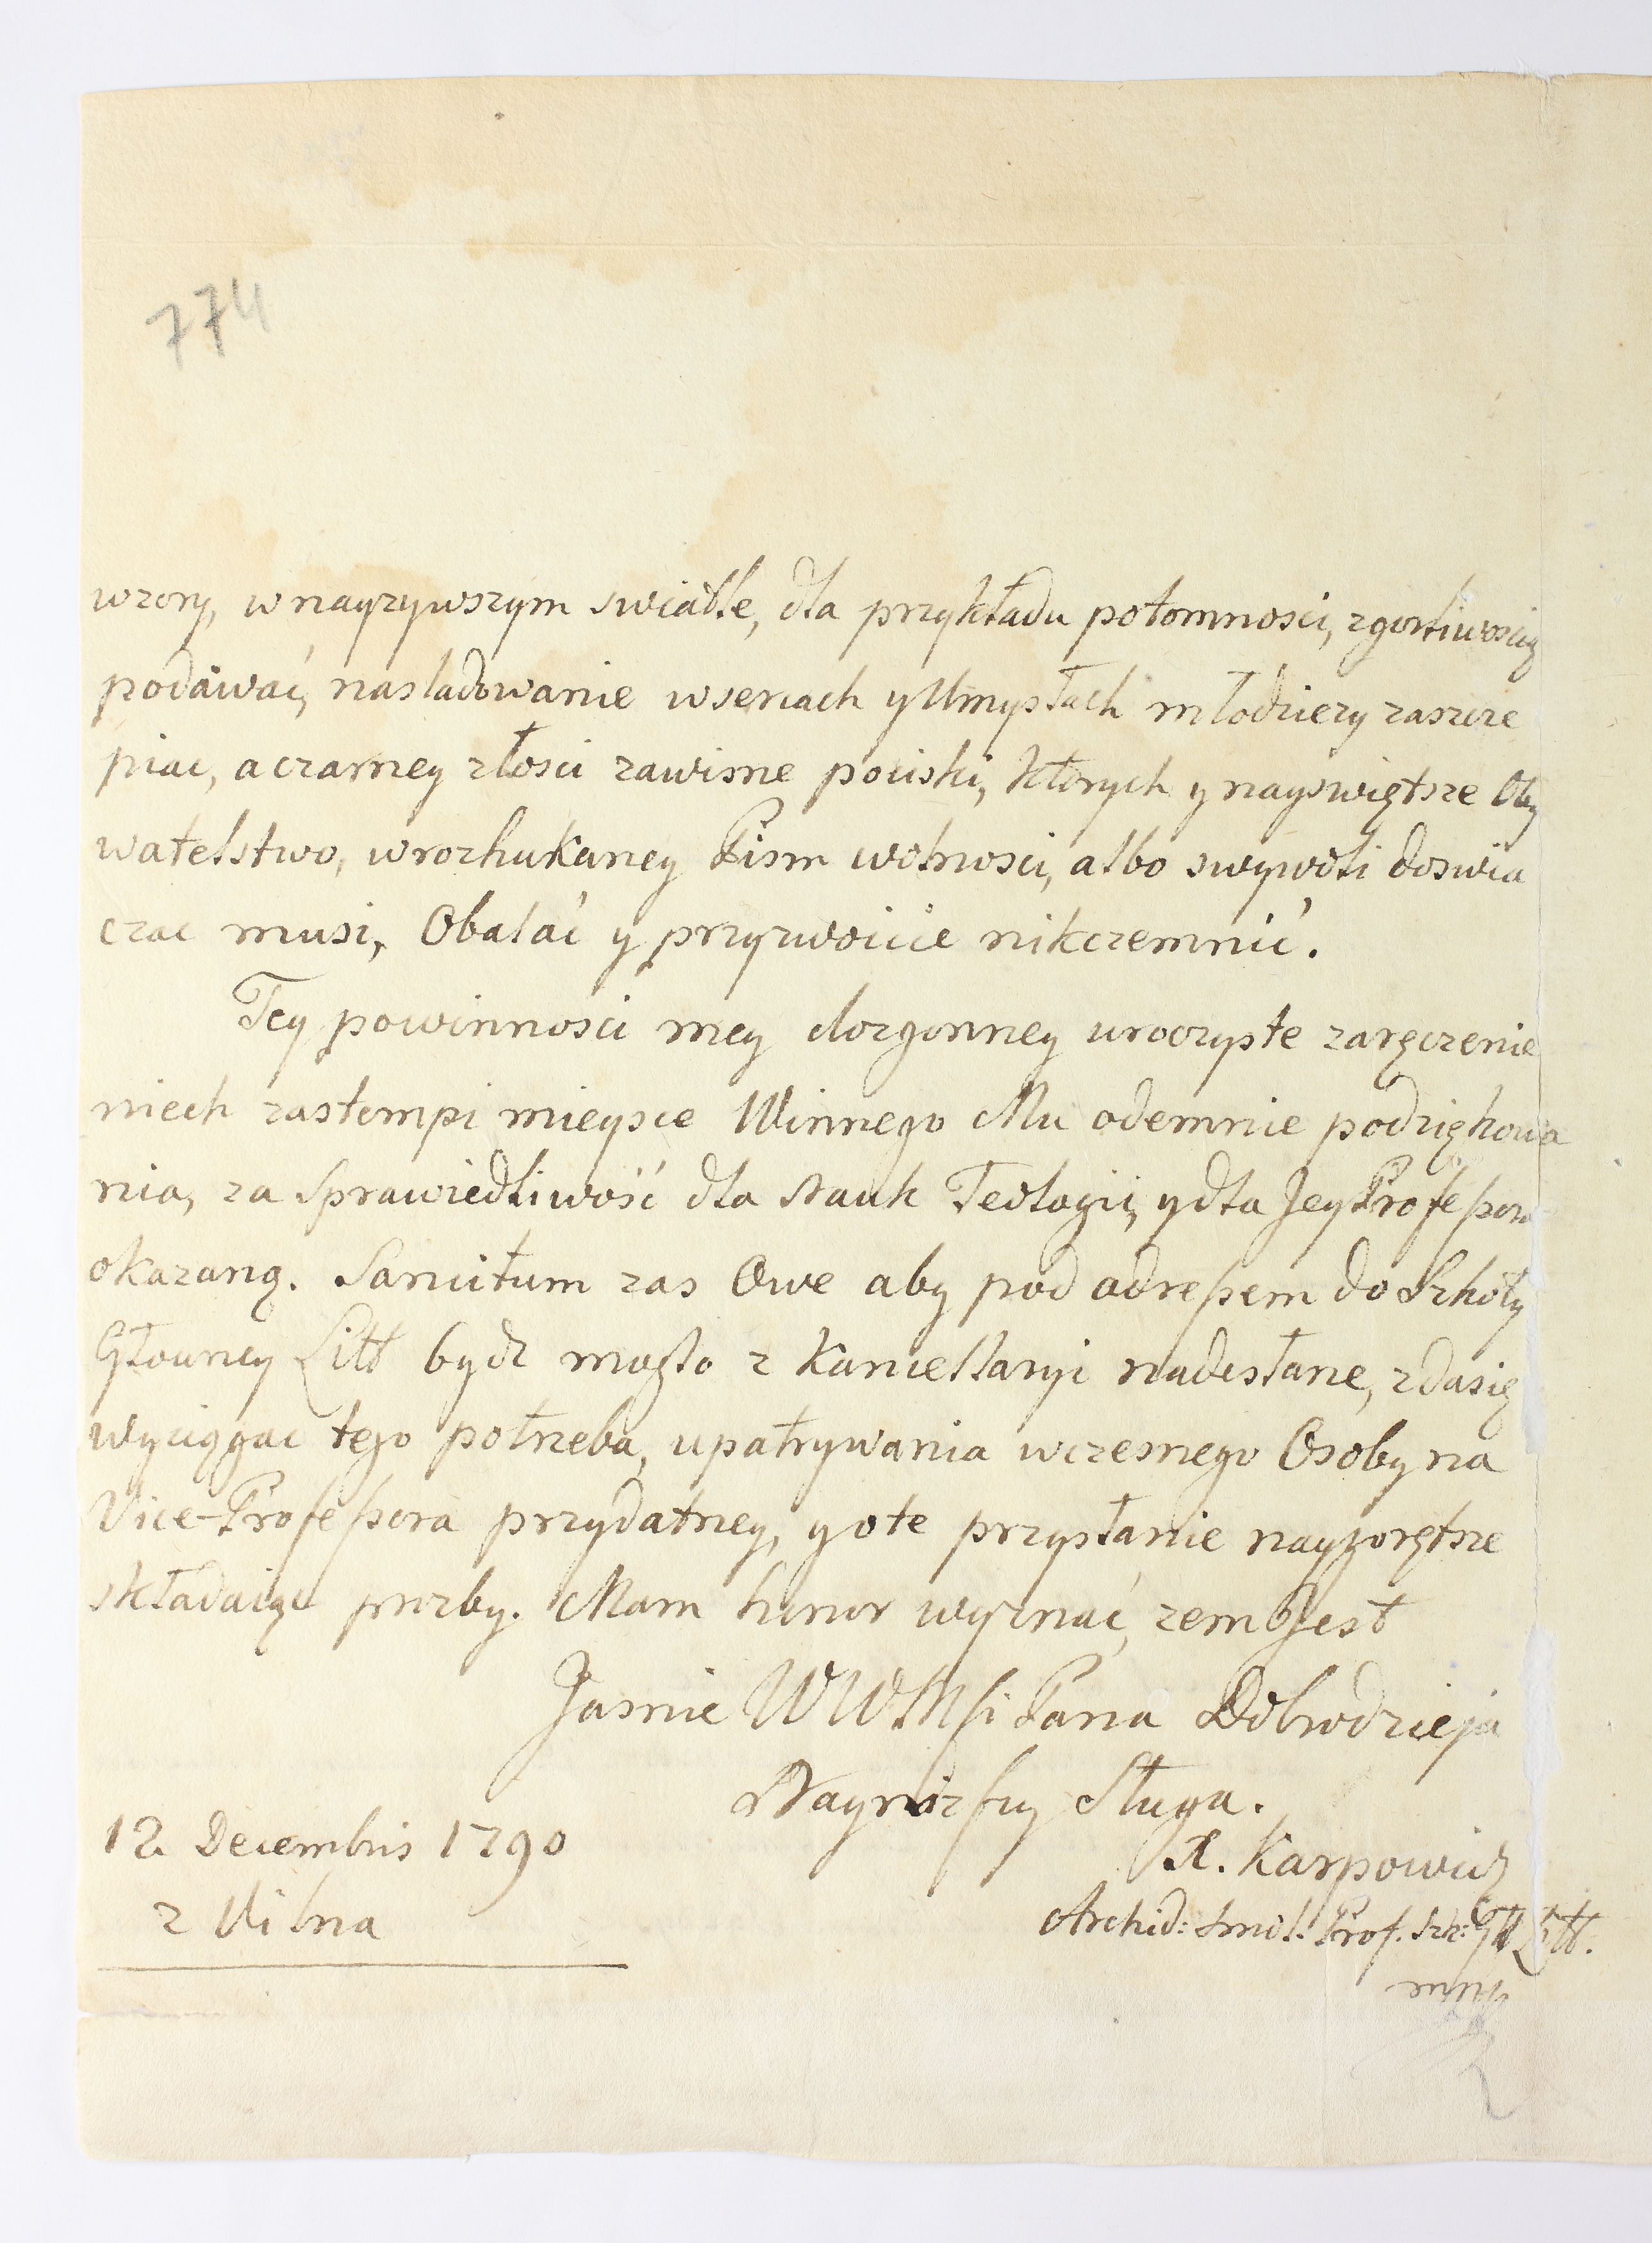 774
wzory, w nayzywszym swiatle, dla przykładu potomnosci, z gorliwoscią
podawać, nasladowanie w sercach y Umysłach młodziezy zaszcze
piac, a czarney złosci zawisne pociski, ktorych y nayswiętsze Oby
watelstwo, w rozhukaney Pism wolnosci, albo swywoli doswia
czac musi, Obalać y przyzwoicie nikczemnić.
Tey powinnosci mey dozgonney uroczyste zaręczenie
niech zastempi mieysce Winnego Mu odemnie podziękowa
nia, za Sprawiedliwość dla Nauk Teologii, y dla Jey Professora
okazaną. Sancitum zas Owe aby pod adressem do Szkoły
Głowney Litt bydz mogło z Kancellaryi nadesłane, zda się
wyciągac tego potrzeba, upatrywania wczesnego Osoby na
Vice-Professora przydatney, y o te przysłanie naygorętsze
składaiąc prozby. Mam honor wyznać, zem Jest
Jasnie WWMsci Pana Dobrodzieja
Nayniższy Sługa.
12 Decembris 1790
z Vilna
X. Karpowicz
Archid: Smol. Prof. Szk: Gł Litt.
mnp